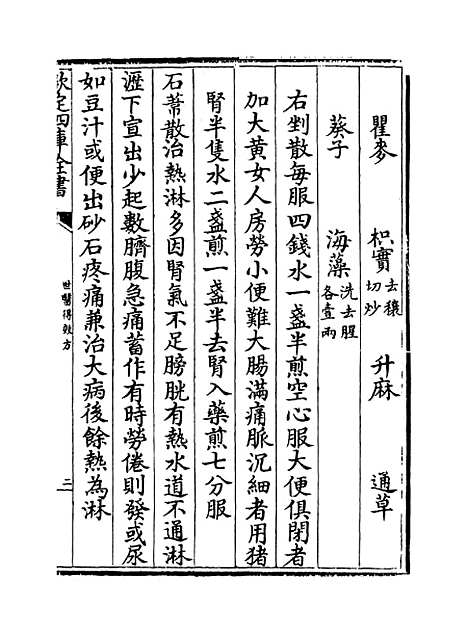 瞿麥　枳實去穰切炒　升麻　通草
葵子　海藻洗去腥各壹兩
右剉散毎服四錢水一盞半煎空心服大便俱閉者
加大黄女人房勞小便難大腸滿痛脈沉細者用猪
腎半隻水二盞煎一盞半去腎入藥煎七分服
石葦散治熱淋多因腎氣不足膀胱有熱水道不通淋
瀝下宣出少起數臍腹急痛蓄作有時勞倦則發或尿
如豆汁或便出砂石疼痛兼治大病後餘熱為淋
欽定四庫全書
世醫得效方
三